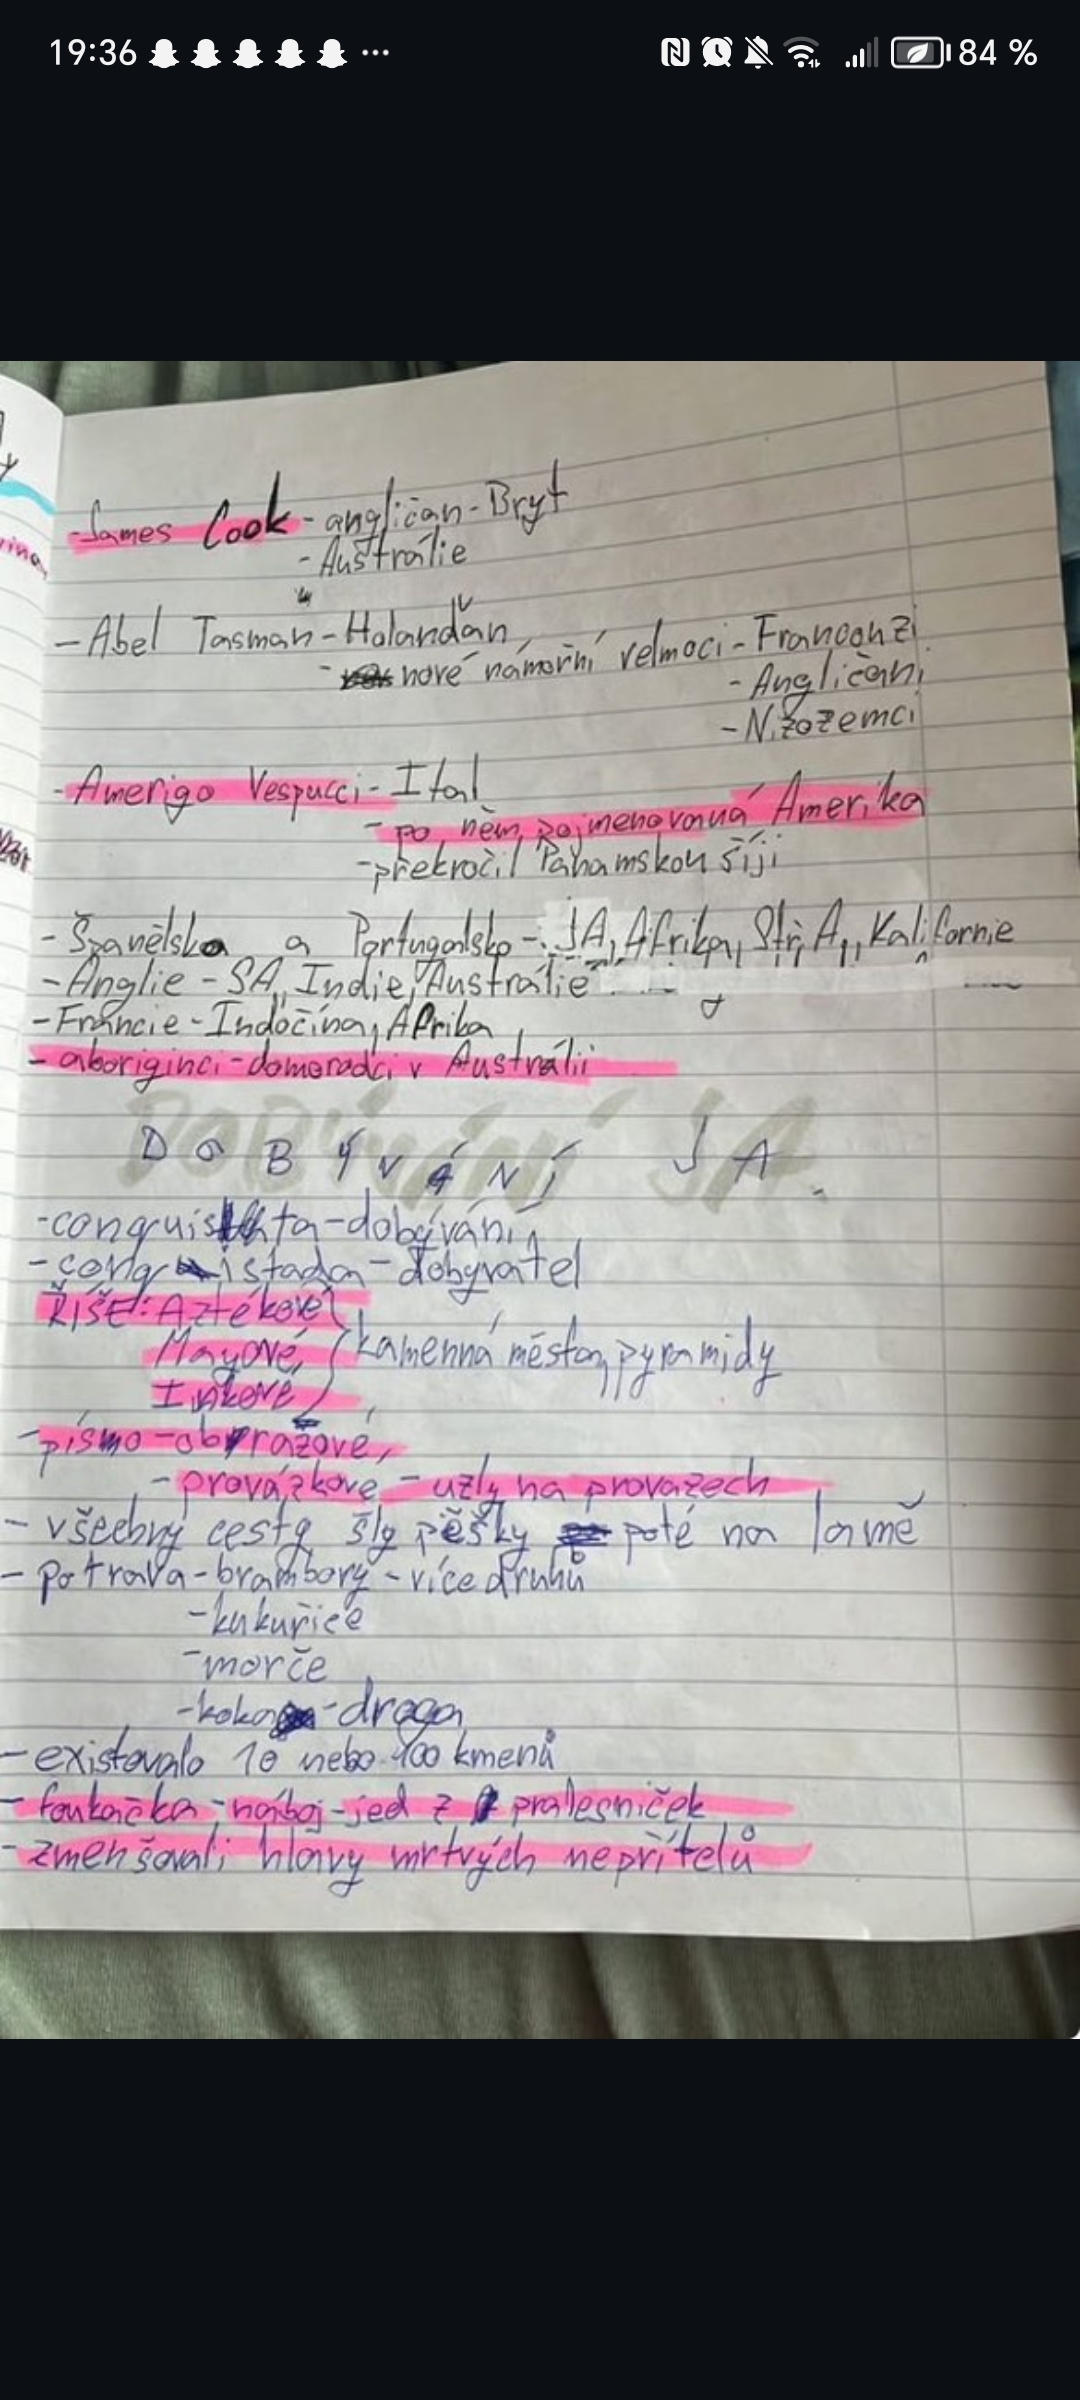 19:36 84 %
- James Cook - angličan - Bryt
- Austrálie
- Abel Tasman - Holanďan
- nové námořní velmoci - Francouzi
- Angličani
- Nizozemci
- Amerigo Vespucci - Ital
- po něm pojmenovaná Amerika
- překročil Panamskou šíji
- Španělsko a Portugalsko - JA, Afrika, Stř. A, Kalifornie
- Anglie - SA, Indie, Austrálie
- Francie - Indočína, Afrika
- aboriginci - domorodci v Austrálii
DOBÝVÁNÍ JA
- conquista - dobývání
- conquistador - dobyvatel
ŘÍŠE: Aztékové
Mayové } kamenná města, pyramidy
Inkové
- písmo - obrázové,
- provázkové - uzly na provazech
- všechny cesty šly pěšky poté na lamě
- potrava - brambory - více druhů
- kukuřice
- morče
- koka - droga
- existovalo 10 nebo 100 kmenů
- foukačka - náboj - jed z pralesniček
- zmenšovali hlavy mrtvých nepřítelů